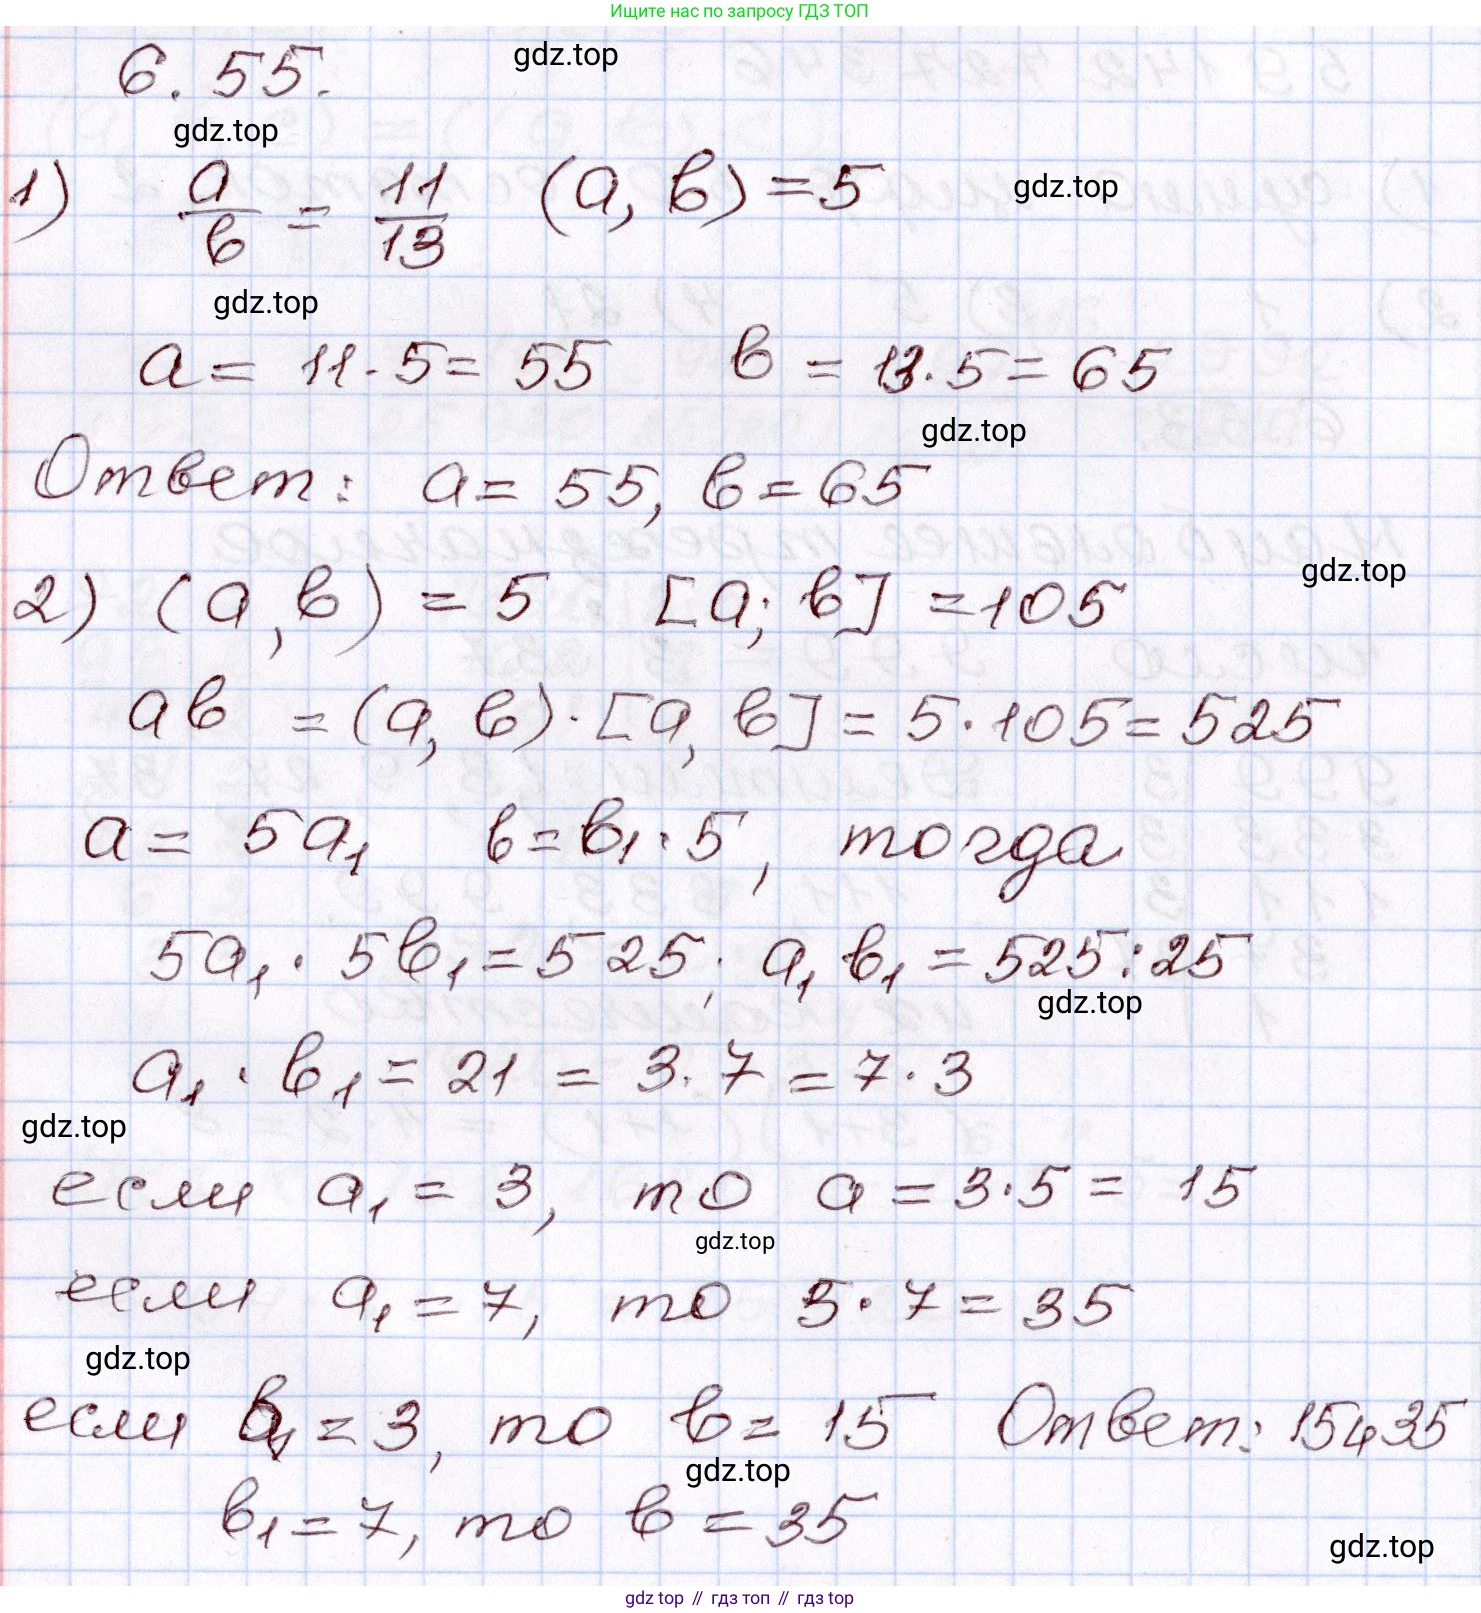 Ищите нас по запросу ГДЗ ТОП
6.55.
gdz.top
gdz.top
1) a/b = 11/13 (a, b) = 5
gdz.top
gdz.top
a = 11 · 5 = 55 b = 13 · 5 = 65
gdz.top
Ответ: a = 55, b = 65
gdz.top
2) (a, b) = 5 [a; b] = 105
ab = (a, b) · [a, b] = 5 · 105 = 525
a = 5a₁ b = b₁ · 5, тогда
5a₁ · 5b₁ = 525; a₁ b₁ = 525 : 25
gdz.top
a₁ · b₁ = 21 = 3 · 7 = 7 · 3
gdz.top
если a₁ = 3, то a = 3 · 5 = 15
gdz.top
если a₁ = 7, то 5 · 7 = 35
gdz.top
если b₁ = 3, то b = 15 Ответ: 15 и 35
gdz.top
b₁ = 7, то b = 35
gdz.top
gdz top // гдз топ // гдз top